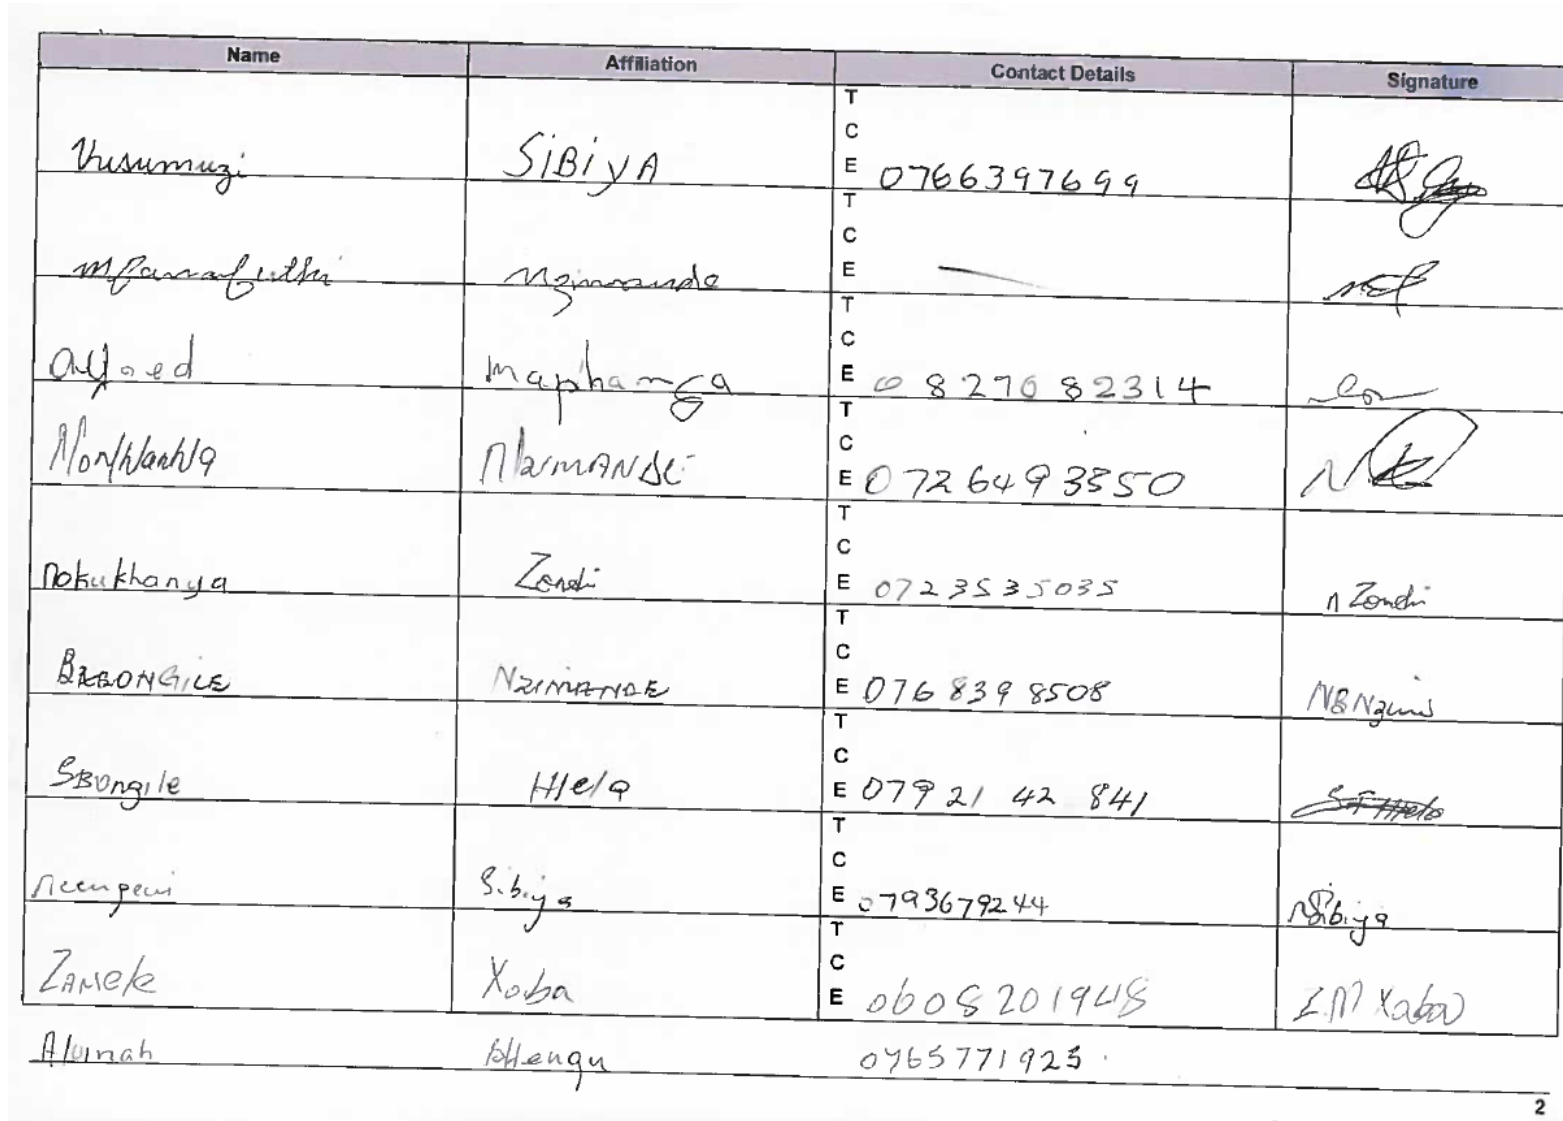 Name Affiliation Contact Details Signature
T
C
Vusumuzi SiBiYA E 0766397699
T
C
Mfanafuthi Nzimande E
T
C
Alfred Maphanga E 0827082314
T
C
NZIMANDE E 0726493550
T
C
Nokukhanya Zondi E 0723535035 n Zondi
T
C
BABONGILE NZIMANDE E 0768398508
T
C
SBongile Hlela E 079 21 42 841 S F Hlela
T
C
Sibiya E 0793679244 N Sibiya
T
C
ZAMele Xaba E 0608201948 Z.M Xaba
Alvinah Bhengu 0765771925
2